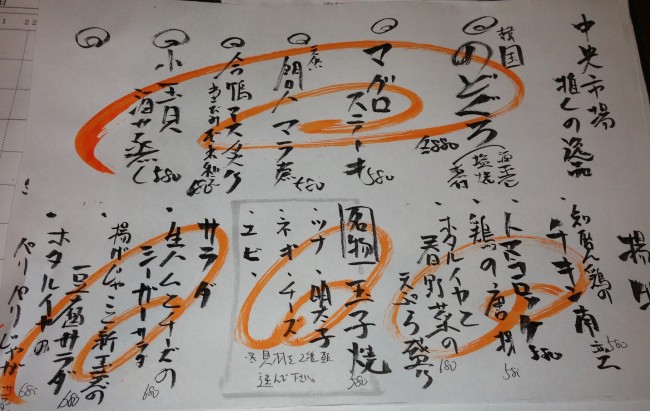 中央市場
推しの逸品
のどぐろ
塩焼
煮付
マグロ
ステーキ
580
朝日マラ煮
580
合鴨ロース
小玉貝
酒蒸し
580
揚げ
知覧鶏の
チキン南蛮
580
トマトコロッケ
580
鶏の唐揚
580
ホタルイカと
春野菜の
天ぷら盛り
680
名物 玉子焼
ツナ・明太子
ネギ・チーズ
エビ
※具材を2種類
選んで下さい。
380
サラダ
生ハムとチーズの
シーザーサラダ
680
揚げじゃこと新玉の
豆腐サラダ
680
ホタルイカの
パリパリじゃが
680